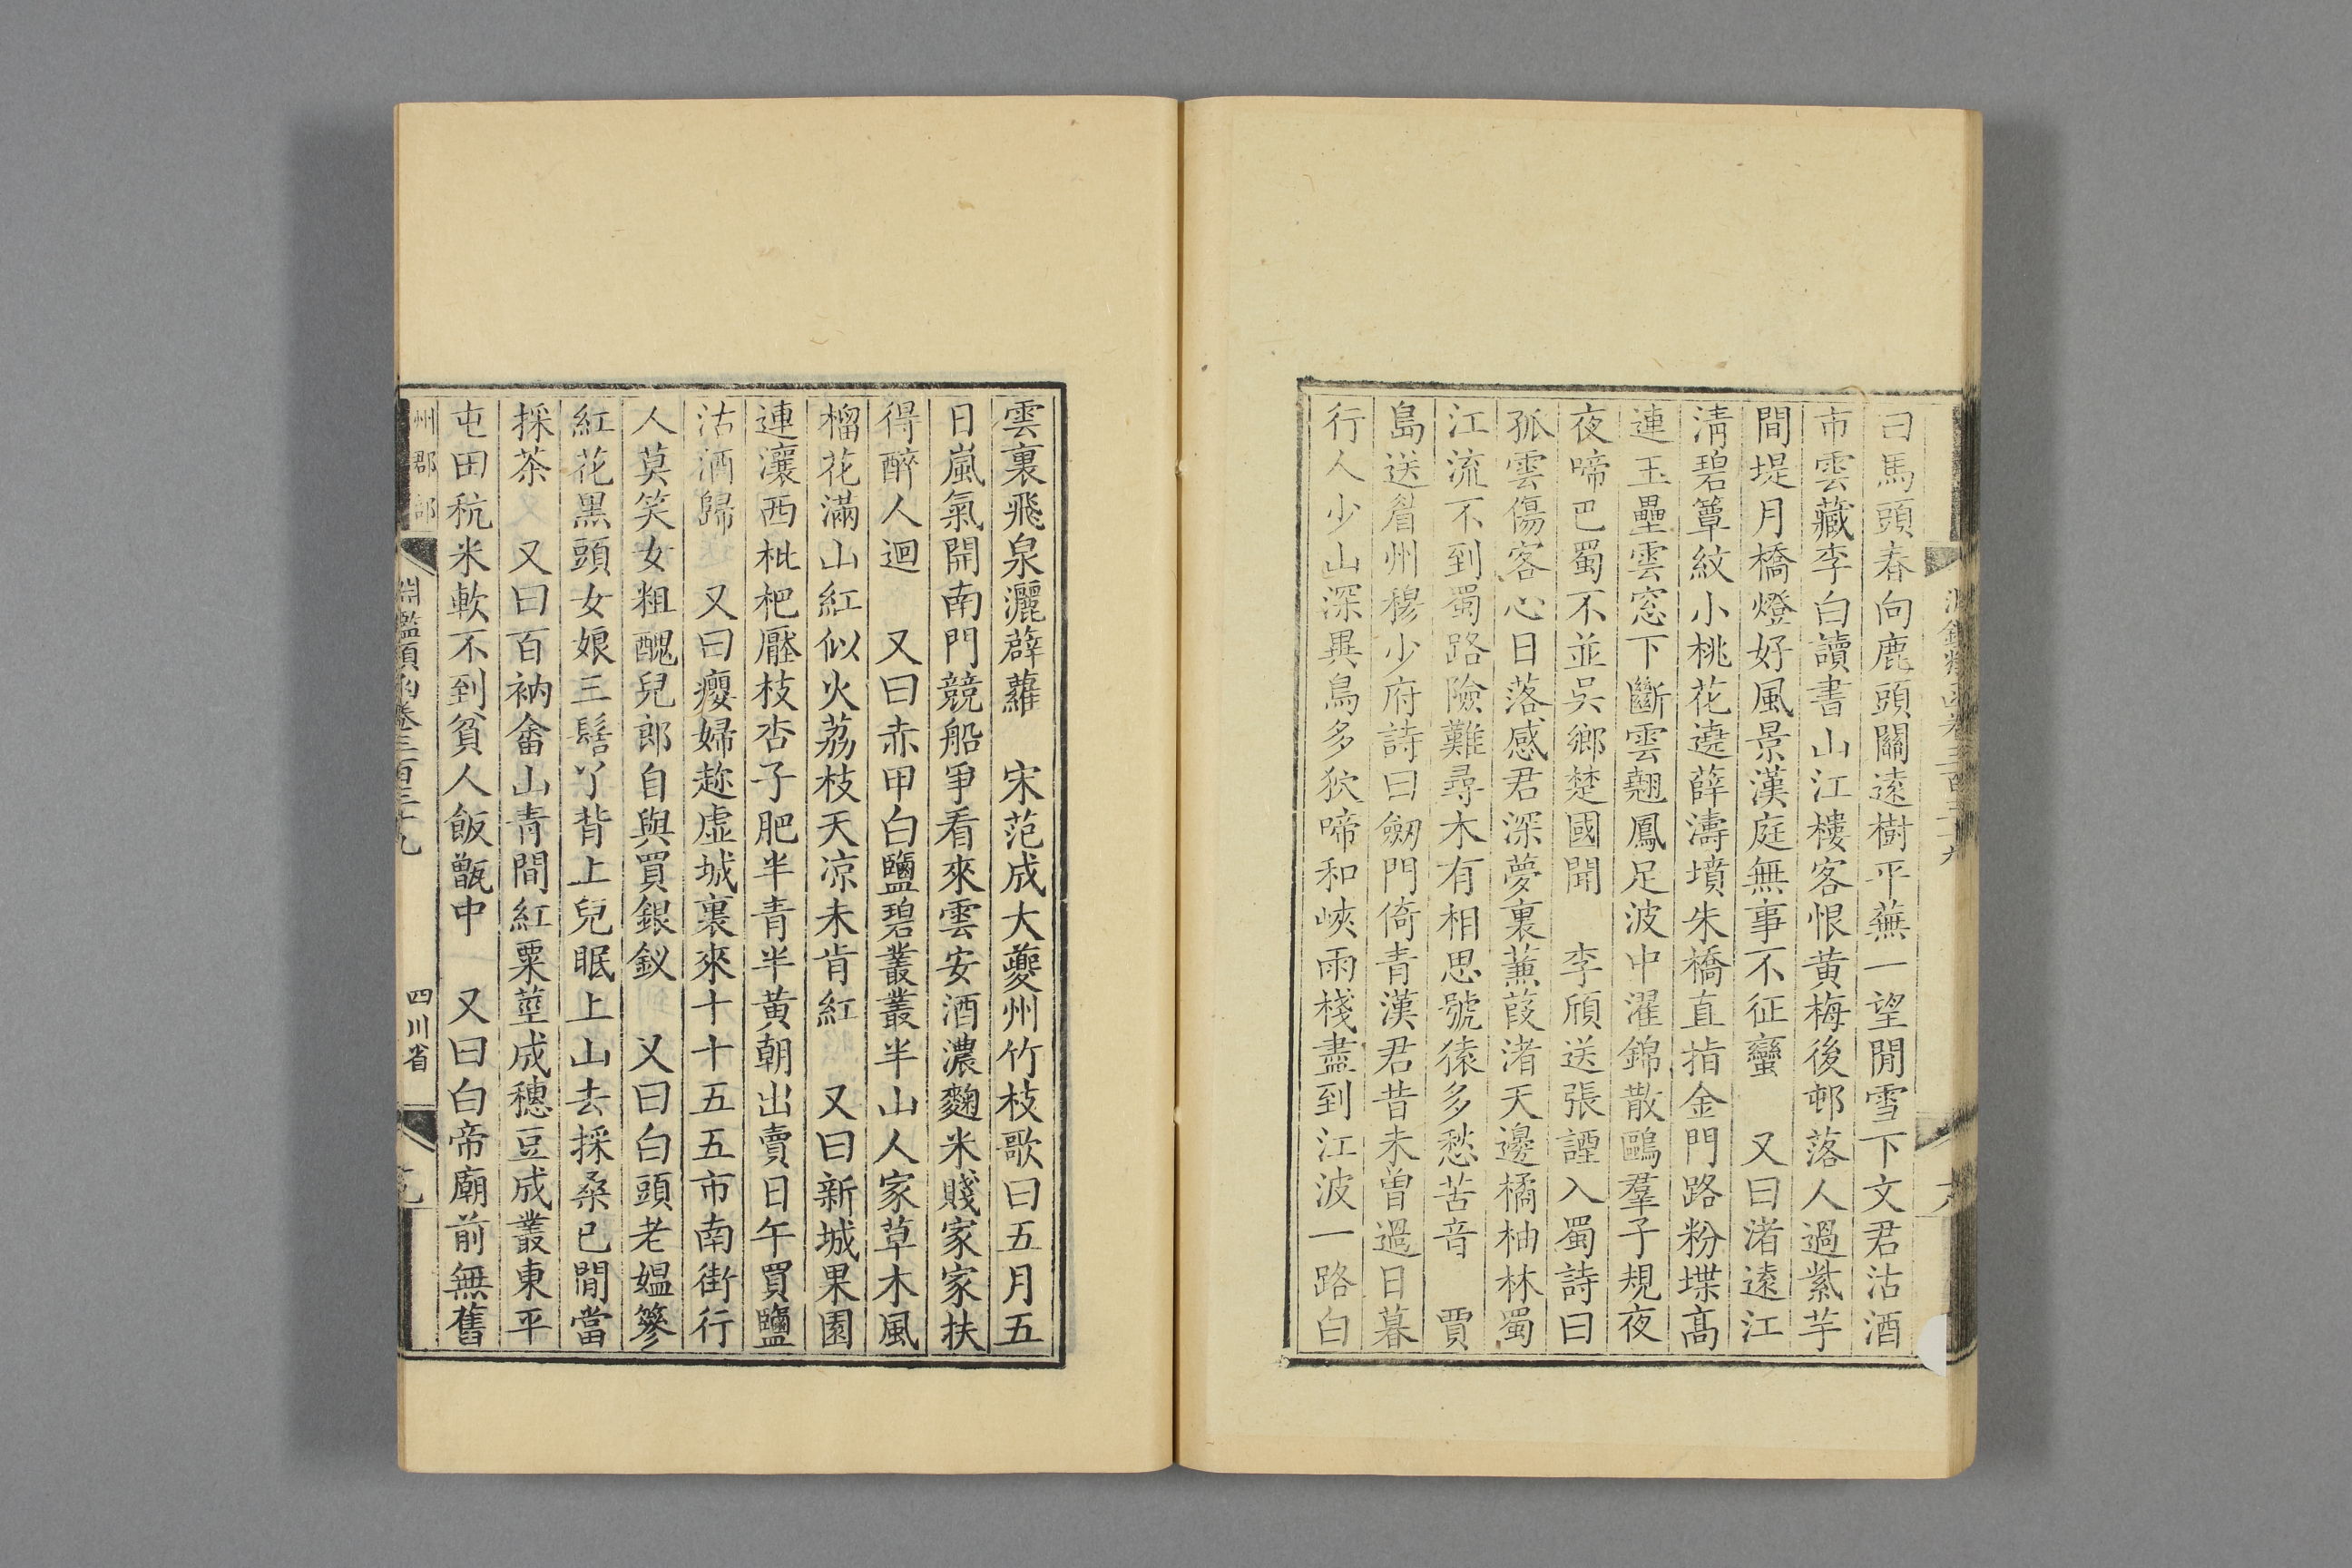 曰馬頭春向鹿頭關遠樹平蕪一望閒雪下文君沽酒
市雲藏李白讀書山江樓客恨黃梅後邨落人過紫芋
間堤月橋燈好風景漢庭無事不征蠻　又曰渚遠江
淸碧簟紋小桃花遶薛濤墳朱橋直指金門路粉堞高
連玉壘雲窓下斷雲翹鳳足波中濯錦散鷗羣子規夜
夜啼巴蜀不並吳鄉楚國聞　李頎送張諲入蜀詩曰
孤雲傷客心日落感君深夢裏蒹葭渚天邊橘柚林蜀
江流不到蜀路險難尋木有相思號猿多愁苦音　賈
島送眉州穆少府詩曰劒門倚青漢君昔未曾過日暮
行人少山深異鳥多狖啼和峽雨棧盡到江波一路白
雲裏飛泉灑薜蘿　宋范成大夔州竹枝歌曰五月五
日嵐氣開南門競船爭看來雲安酒濃麴米賤家家扶
得醉人迴　又曰赤甲白鹽碧叢叢半山人家草木風
榴花滿山紅似火荔枝天凉未肯紅　又曰新城果園
連瀼西枇杷壓枝杏子肥半青半黃朝出賣日午買鹽
沽酒歸　又曰癭婦趂虛城裏來十十五五市南街行
人莫笑女粗醜兒郎自與買銀釵　又曰白頭老媼篸
紅花黑頭女娘三髻丫背上兒眠上山去採桑已閒當
採茶　又曰百衲畬山青間紅粟莖成穗豆成叢東平
屯田秔米軟不到貧人飯甑中　又曰白帝廟前無舊
州郡部
淵鑑類函卷三百三十九
四川省